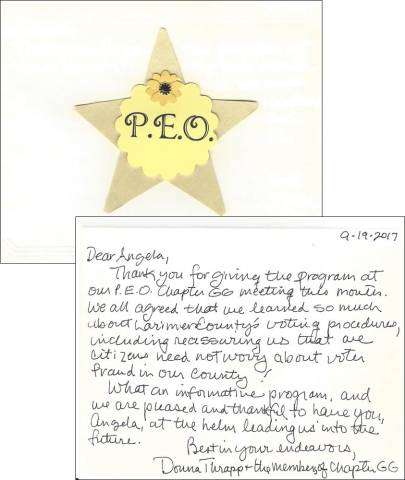 P.E.O.
9-19-2017
Dear Angela,
Thank you for giving the program at
our P.E.O. Chapter GG meeting this month.
We all agreed that we learned so much
about Larimer County's voting procedures,
including reassuring us that we
citizens need not worry about voter
fraud in our county!
What an informative program, and
we are pleased and thankful to have you,
Angela, at the helm leading us into the
future.
Best in your endeavors,
Donna Thrapp + the members of Chapter GG